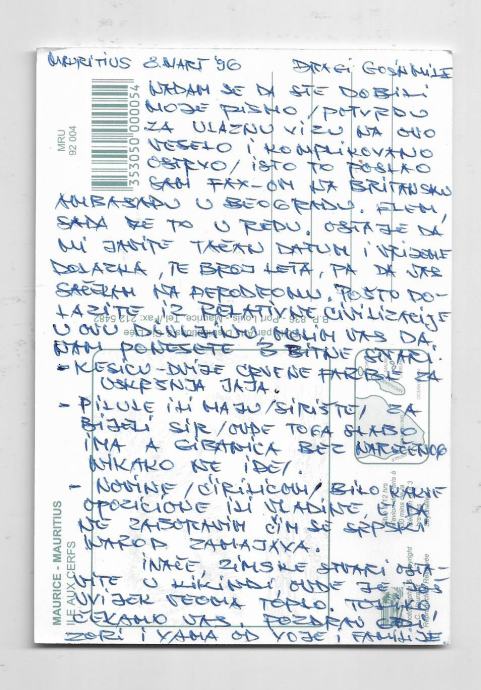 MAURITIUS 8. MART '96 DRAGI GOSN MILE
NADAM SE DA STE DOBILI
MOJE PISMO /POTVRDU
ZA ULAZNU VIZU NA OVO
VESELO I KOMPLIKOVANO
OSTRVO/ ISTO TO POSLAO
SAM FAX-OM NA BRITANSKU
AMBASADU U BEOGRADU. ELEM,
SADA JE TO U REDU. OSTAJE DA
MI JAVITE TAČAN DATUM I VRIJEME
DOLAZKA, TE BROJ LETA, PA DA VAS
SAČEKAM NA AERODROMU. POŠTO DO-
LAZITE IZ RELATIVNE CIVILIZACIJE
U OVU DIVLJINU, MOLIM VAS DA
NAM PONESETE 3 BITNE STVARI.
- KESICU-DVIJE CRVENE FARBE ZA
USKRŠNJA JAJA.
- PILULE ILI MAJU/SIRIŠTE/ ZA
BIJELI SIR/OVDE TOGA SLABO
IMA A GIBANICA BEZ NAREČENOG
NIKAKO NE IDE/.
- NOVINE /ĆIRILICOM/ BILO KAKVE
OPOZICIONE ILI VLADINE, DA
NE ZABORAVIM ČIM SE SRPSKI
NAROD ZAMAJAVA.
INAČE, ZIMSKE STVARI OSTA-
VITE U KIKINDI OVDE JE JOŠ
UVIJEK VEOMA TOPLO. TOLIKO
ČEKAMO VAS. POZDRAV
ZORI I VAMA OD VOJE I FAMILIJE
MRU
92 004
353050 000054
MAURICE - MAURITIUS
ILE AUX CERFS
B.P. 836 - Port Louis - Maurice. Tel./Fax: 212 5482